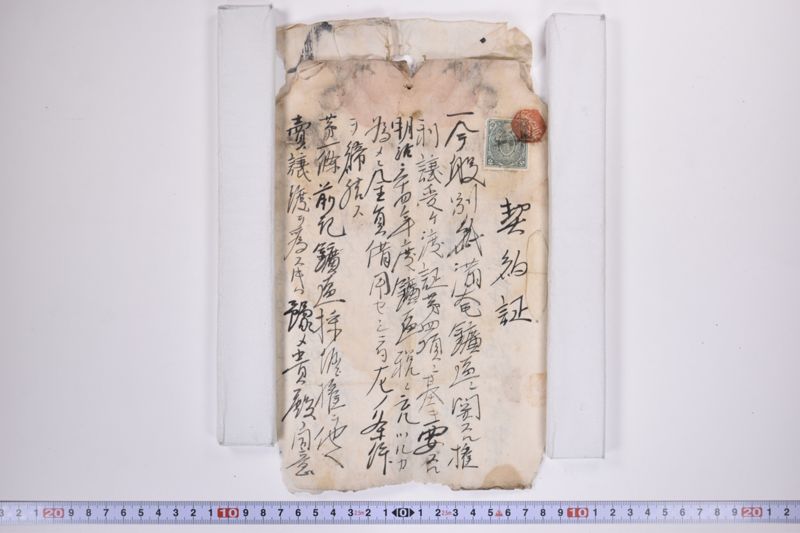 契約証
一今般別紙満俺鑛区ニ関スル権
利譲受ケ渡証第四項ニ基キ要スル
明治三十四年度鑛区税ニ充ツル力
為メニ金員借用セシニ付左ノ条件
ヲ締結ス
第一条前記鑛区採掘権ヲ他ヘ
賣譲渡ヲ為ス片ハ豫メ貴殿ノ同意
3 2 1 20 9 8 7 6 5 4 3 2 1 10 9 8 7 6 5 4 3 2 1 0 1 2 3 4 5 6 7 8 9 10 1 2 3 4 5 6 7 8 9 20 1 2